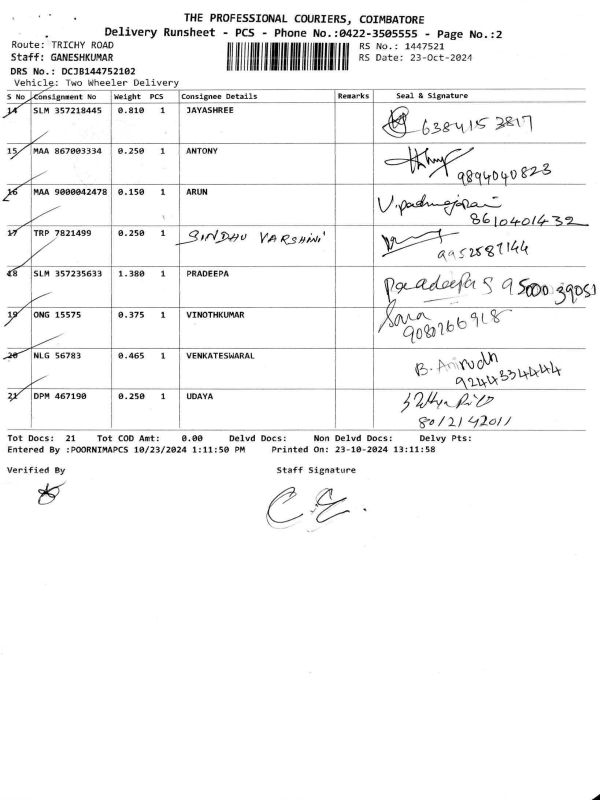 THE PROFESSIONAL COURIERS, COIMBATORE
Delivery Runsheet - PCS - Phone No.:0422-3505555 - Page No.:2
Route: TRICHY ROAD RS No.: 1447521
Staff: GANESHKUMAR RS Date: 23-Oct-2024
DRS No.: DCJB144752102
Vehicle: Two Wheeler Delivery
S No Consignment No Weight PCS Consignee Details Remarks Seal & Signature
14 SLM 357218445 0.810 1 JAYASHREE 6384153817
15 MAA 867003334 0.250 1 ANTONY 9894040823
16 MAA 9000042478 0.150 1 ARUN V.padmajorani 8610401432
17 TRP 7821499 0.250 1 SINDHU VARSHINI 9952587144
18 SLM 357235633 1.380 1 PRADEEPA Pradeepa S 9500039051
19 ONG 15575 0.375 1 VINOTHKUMAR Sara
9080266918
20 NLG 56783 0.465 1 VENKATESWARAL B. Anirudh
9244334444
21 DPM 467190 0.250 1 UDAYA
8012142011
Tot Docs: 21 Tot COD Amt: 0.00 Delvd Docs: Non Delvd Docs: Delvy Pts:
Entered By :POORNIMAPCS 10/23/2024 1:11:50 PM Printed On: 23-10-2024 13:11:58
Verified By Staff Signature